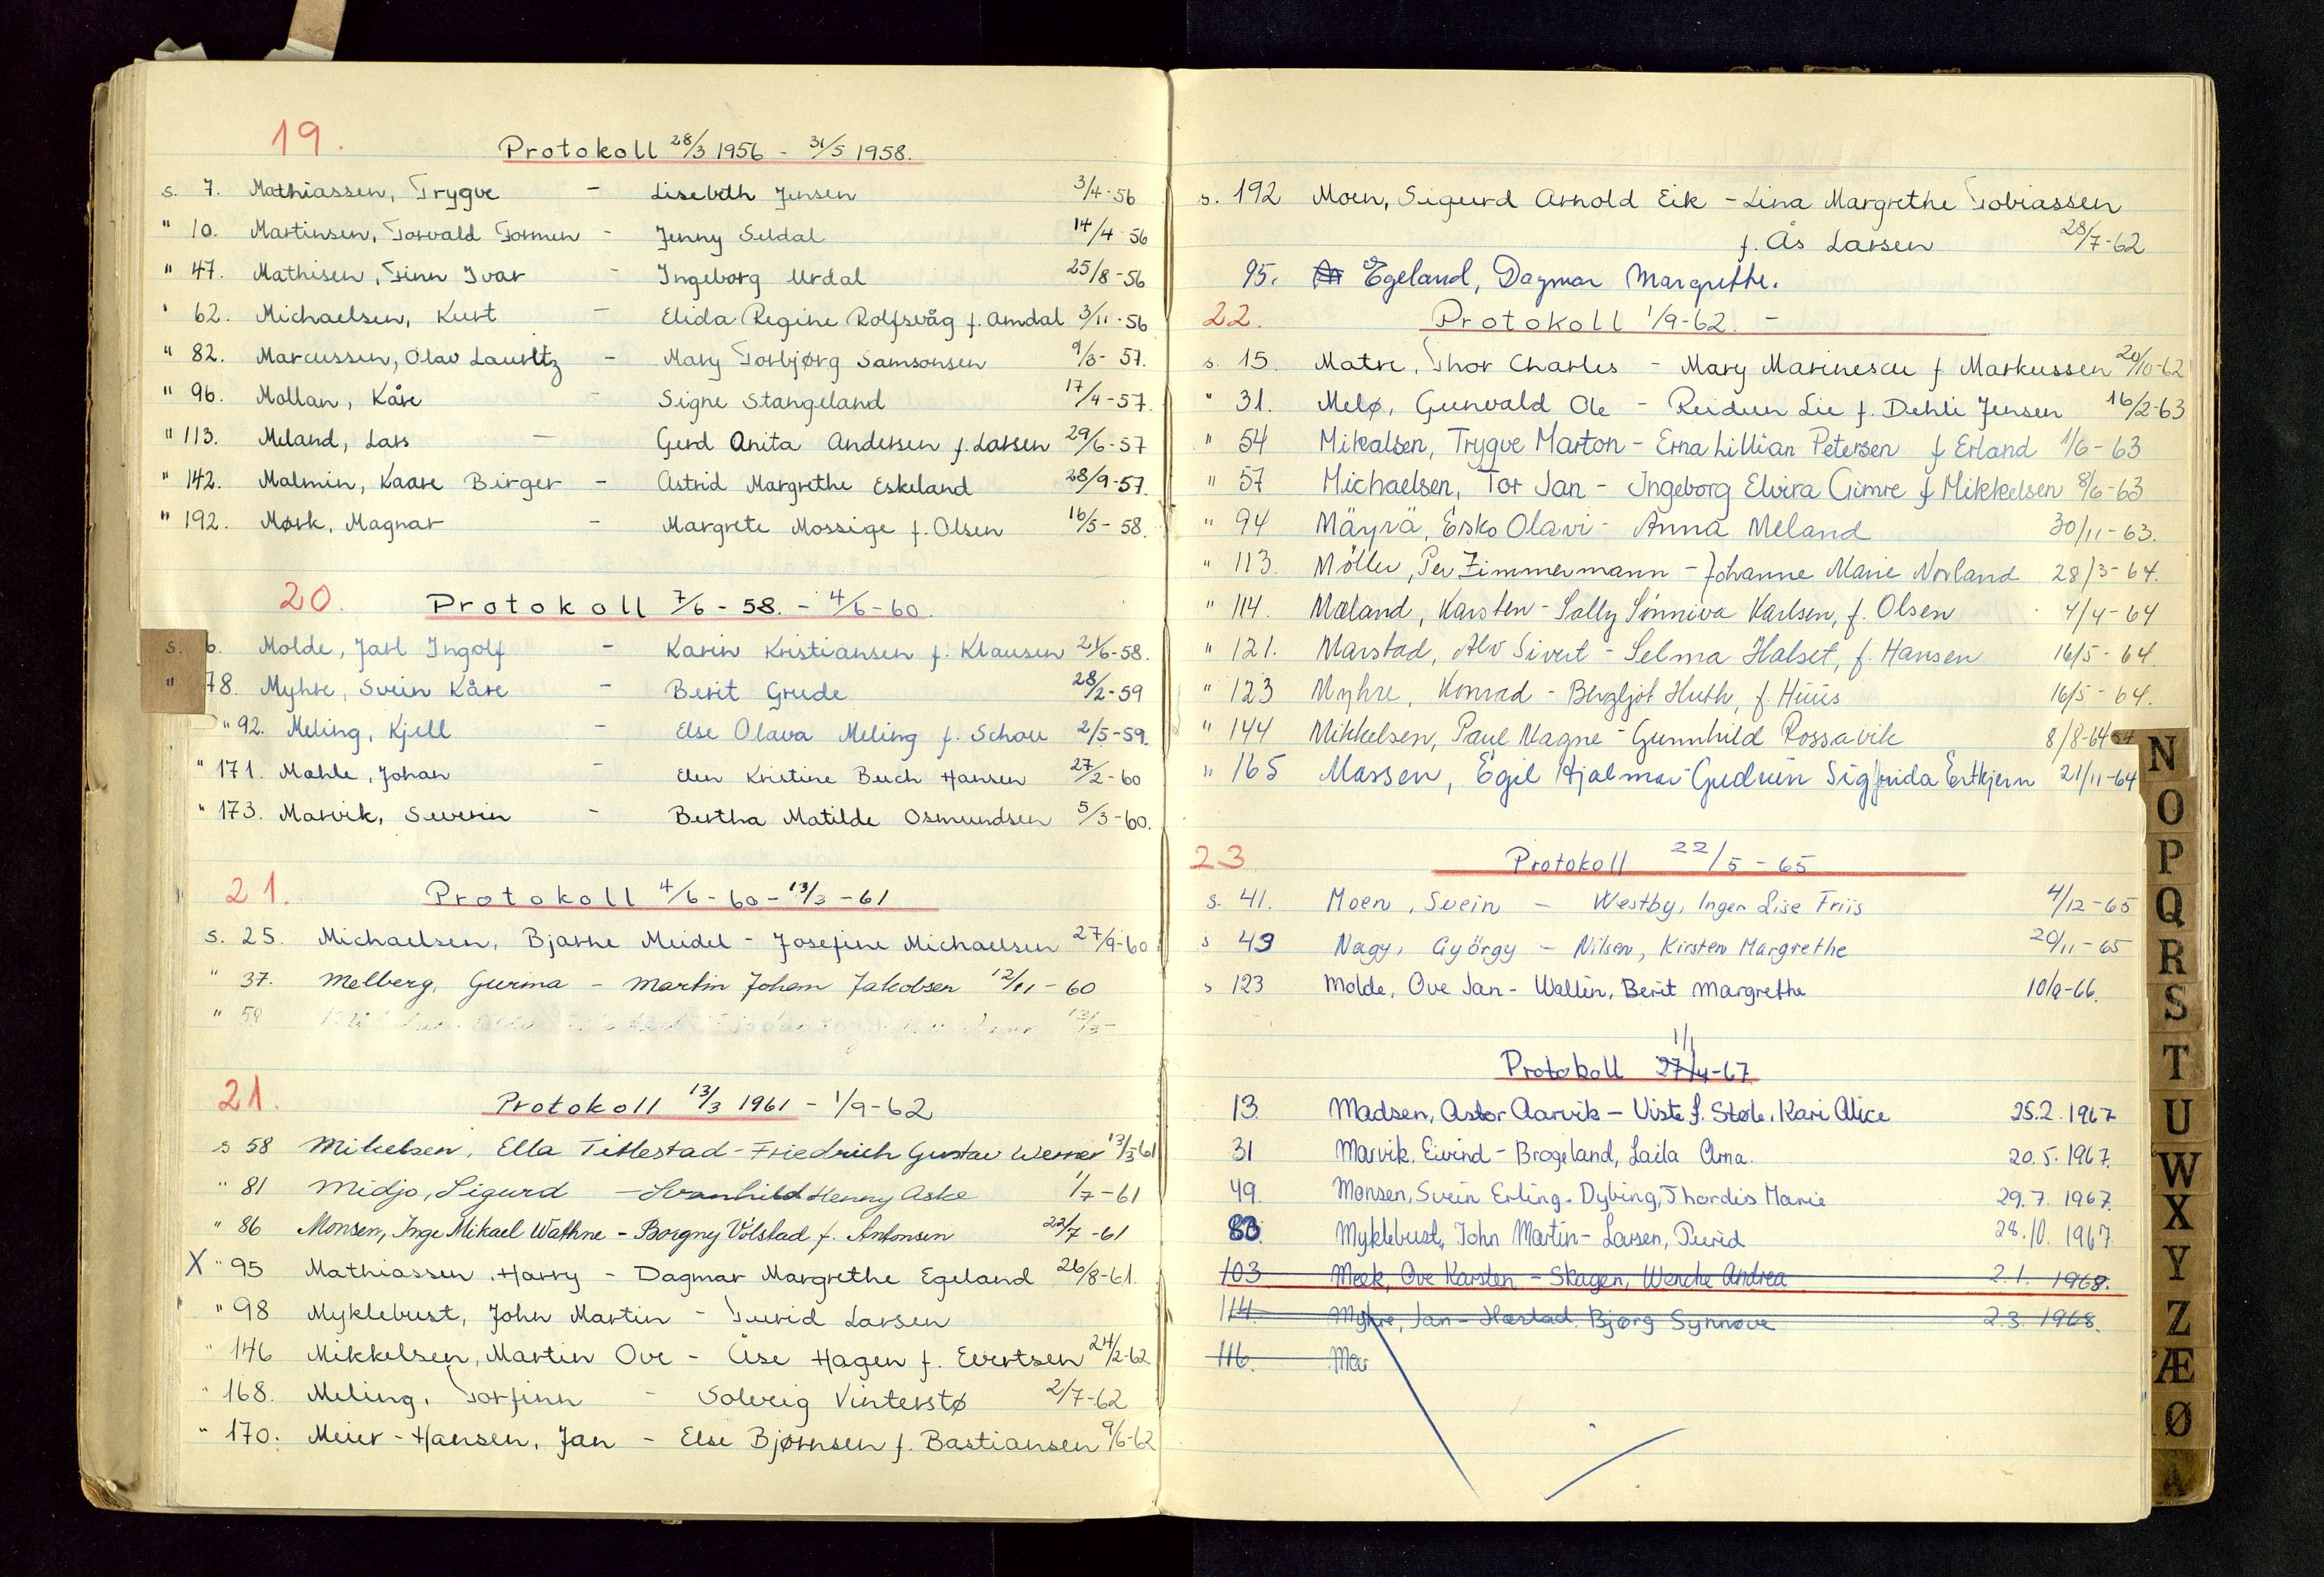 19.
Protokoll 28/3 1956 - 31/5 1958.
s. 7. Mathiassen, Trygve - Lisebeth Jensen 3/4-56
" 10. Martinsen, Torvald Tormen - Jenny Seldal 14/4-56
" 47. Mathisen, Finn Ivar - Ingeborg Urdal 25/8-56
" 62. Michaelsen, Kurt - Elida Regine Rolfsvåg f. Amdal 3/11-56
" 82. Marcussen, Olav Lauritz - Mary Torbjørg Samsonsen 9/3-57.
" 96. Mollan, Kåre - Signe Stangeland 17/4-57.
" 113. Meland, Lars - Gerd Anita Andersen f. Larsen 29/6-57
" 142. Malmin, Kaare Birger - Astrid Margrethe Eskeland 28/9-57.
" 192. Mørk, Magnar - Margrete Mossige f. Olsen 16/5-58.
20.
Protokoll 7/6-58. - 4/6-60.
s. 6. Molde, Jarl Ingolf - Karin Kristiansen f. Klausen 21/6-58.
" 78. Myhre, Svein Kåre - Berit Grude 28/2-59
" 92. Meling, Kjell - Else Olava Meling f. Schou 2/5-59.
" 171. Mahle, Johan - Elen Kristine Buch Hansen 27/2-60
" 173. Marvik, Severin - Bertha Matilde Osmundsen 5/3-60.
21.
Protokoll 4/6-60 - 13/3-61
s. 25. Michaelsen, Bjarne Meidel - Josefine Michaelsen 27/9-60
" 37. Melberg, Gurina - Martin Johan Jakobsen 12/11-60
" 58 13/3-
21.
Protokoll 13/3 1961 - 1/9-62
s 58 Mikelsen, Ella Titlestad - Friedrich Gustav Werner 13/3-61
" 81 Midjo, Sigurd - Svanhild Henny Aske 1/7-61
" 86 Monsen, Inge Mikael Wathne - Borgny Vølstad f. Antonsen 22/7-61
X " 95 Mathiassen, Harry - Dagmar Margrethe Egeland 26/8-61.
" 98 Myklebust, John Martin - Turid Larsen
" 146 Mikkelsen, Martin Ove - Åse Hagen f. Evertsen 24/2-62
" 168. Meling, Torfinn - Solveig Vinterstø 2/7-62
" 170. Meier-Hansen, Jan - Else Bjørnsen f. Bastiansen 9/6-62
s. 192 Moen, Sigurd Arnold Eik - Lina Margrethe Tobiassen
f. Ås Larsen 28/7-62
95. Egeland, Dagmar Margrethe.
22.
Protokoll 1/9-62. -
s. 15. Matre, Thor Charles - Mary Marinescu f Markussen 20/10-62
" 31. Melø, Gunvald Ole - Reidun Lie f. Dehli Jensen 16/2-63
" 54 Mikalsen, Trygve Marton - Erna Lillian Petersen f Erland 1/6-63
" 57 Michaelsen, Tor Jan - Ingeborg Elvira Gimre f Mikkelsen 8/6-63
" 94 Mäyrä, Esko Olavi - Anna Meland 30/11-63.
" 113. Möller, Per Zimmermann - Johanne Marie Norland 28/3-64.
" 114. Mæland, Karsten - Sally Sønniva Karlsen, f. Olsen 4/4-64
" 121. Marstad, Alv Sivert - Selma Halset, f. Hansen 16/5-64.
" 123 Myhre, Konrad - Bergljot Huth, f. Hüüs 16/5-64.
" 144 Mikkelsen, Paul Magne - Gunnhild Rossavik 8/8-64
" 165 Massen, Egil Hjalmar - Gudrun Sigfrida Ertkjern 21/11-64
23
Protokoll 22/5-65
s. 41. Moen, Svein - Westby, Inger Lise Friis 4/12-65
s 43 Nagy, György - Nilsen, Kirsten Margrethe 20/11-65
s 123 Molde, Ove Jan - Wallin, Berit Margrethe 10/9-66.
1/1
Protokoll 27/4-67
13. Madsen, Astor Aarvik - Viste f. Støle, Kari Alice 25.2.1967
31 Marvik, Eivind - Brogeland, Laila Arna. 20.5.1967.
49. Monsen, Svein Erling - Dybing, Thordis Marie 29.7.1967.
83. Myklebust, John Martin - Larsen, Turid 28.10.1967
103 Meek, Ove Karsten - Skagen, Wenche Andrea 2.1.1968.
114. Myhre, Jan - Hæstad, Bjørg Synnøve 2.3.1968.
116. Mar
N
O
P
Q
R
S
T
U
W
X
Y
Z
Æ
Ø